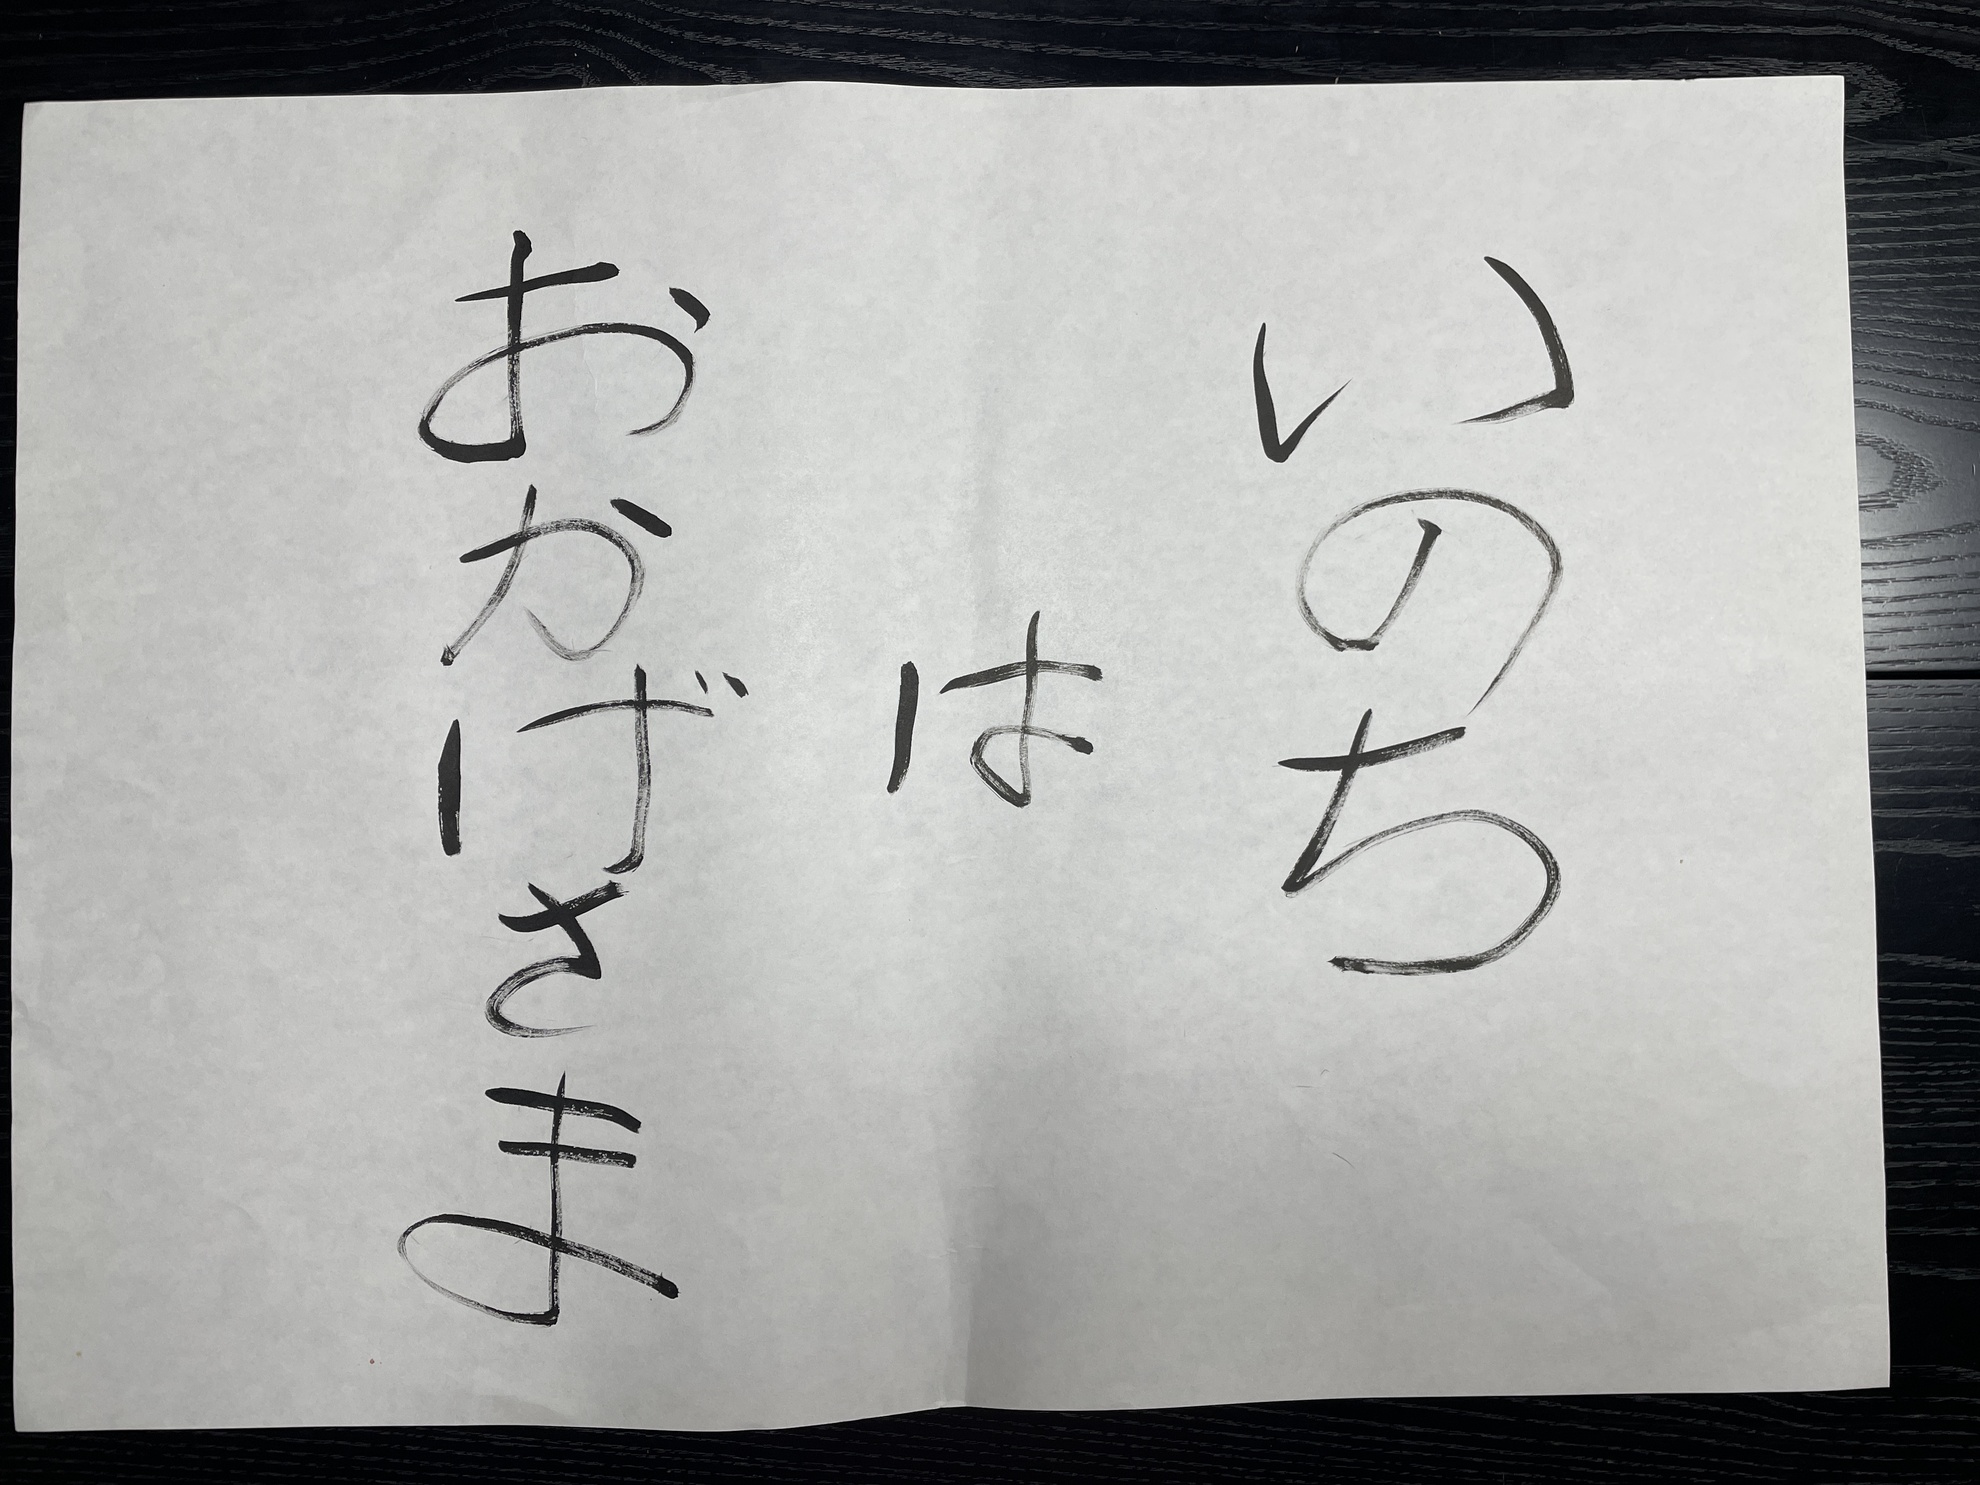 いのち
は
おかげさま